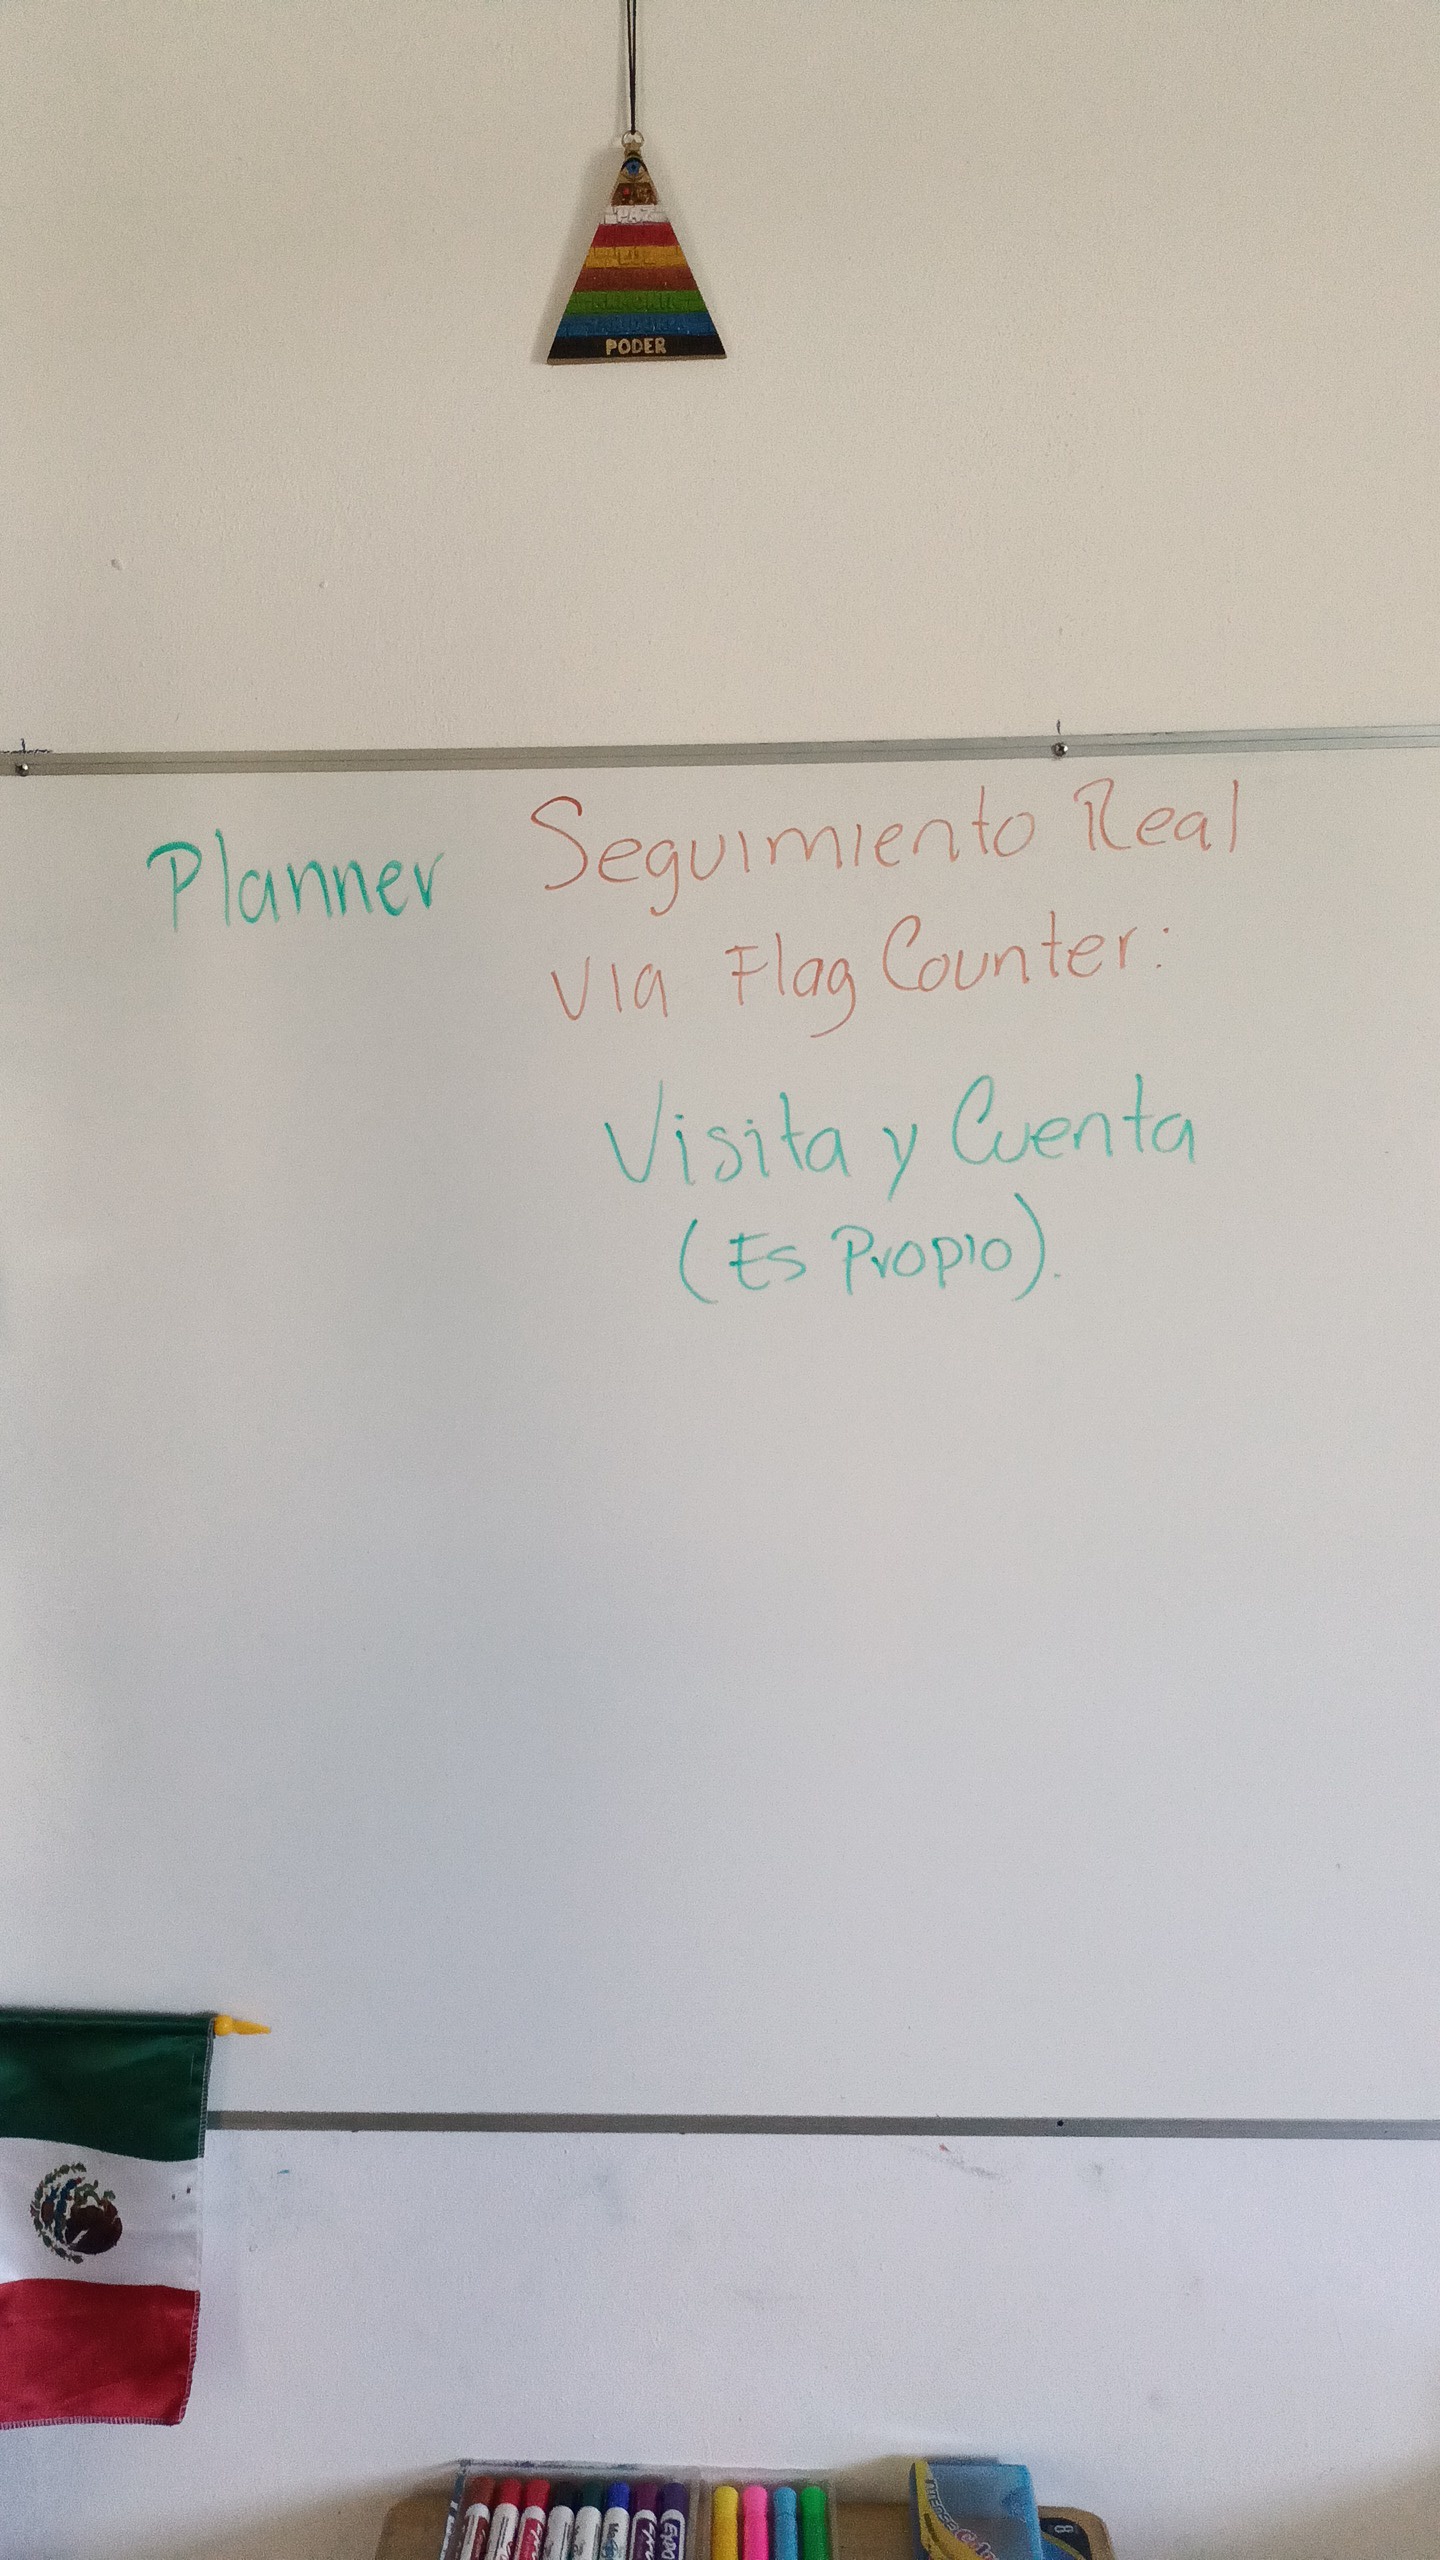 PAZ
PODER
Planner
Seguimiento Real
via Flag Counter:
Visita y Cuenta
(Es Propio).
EXPO